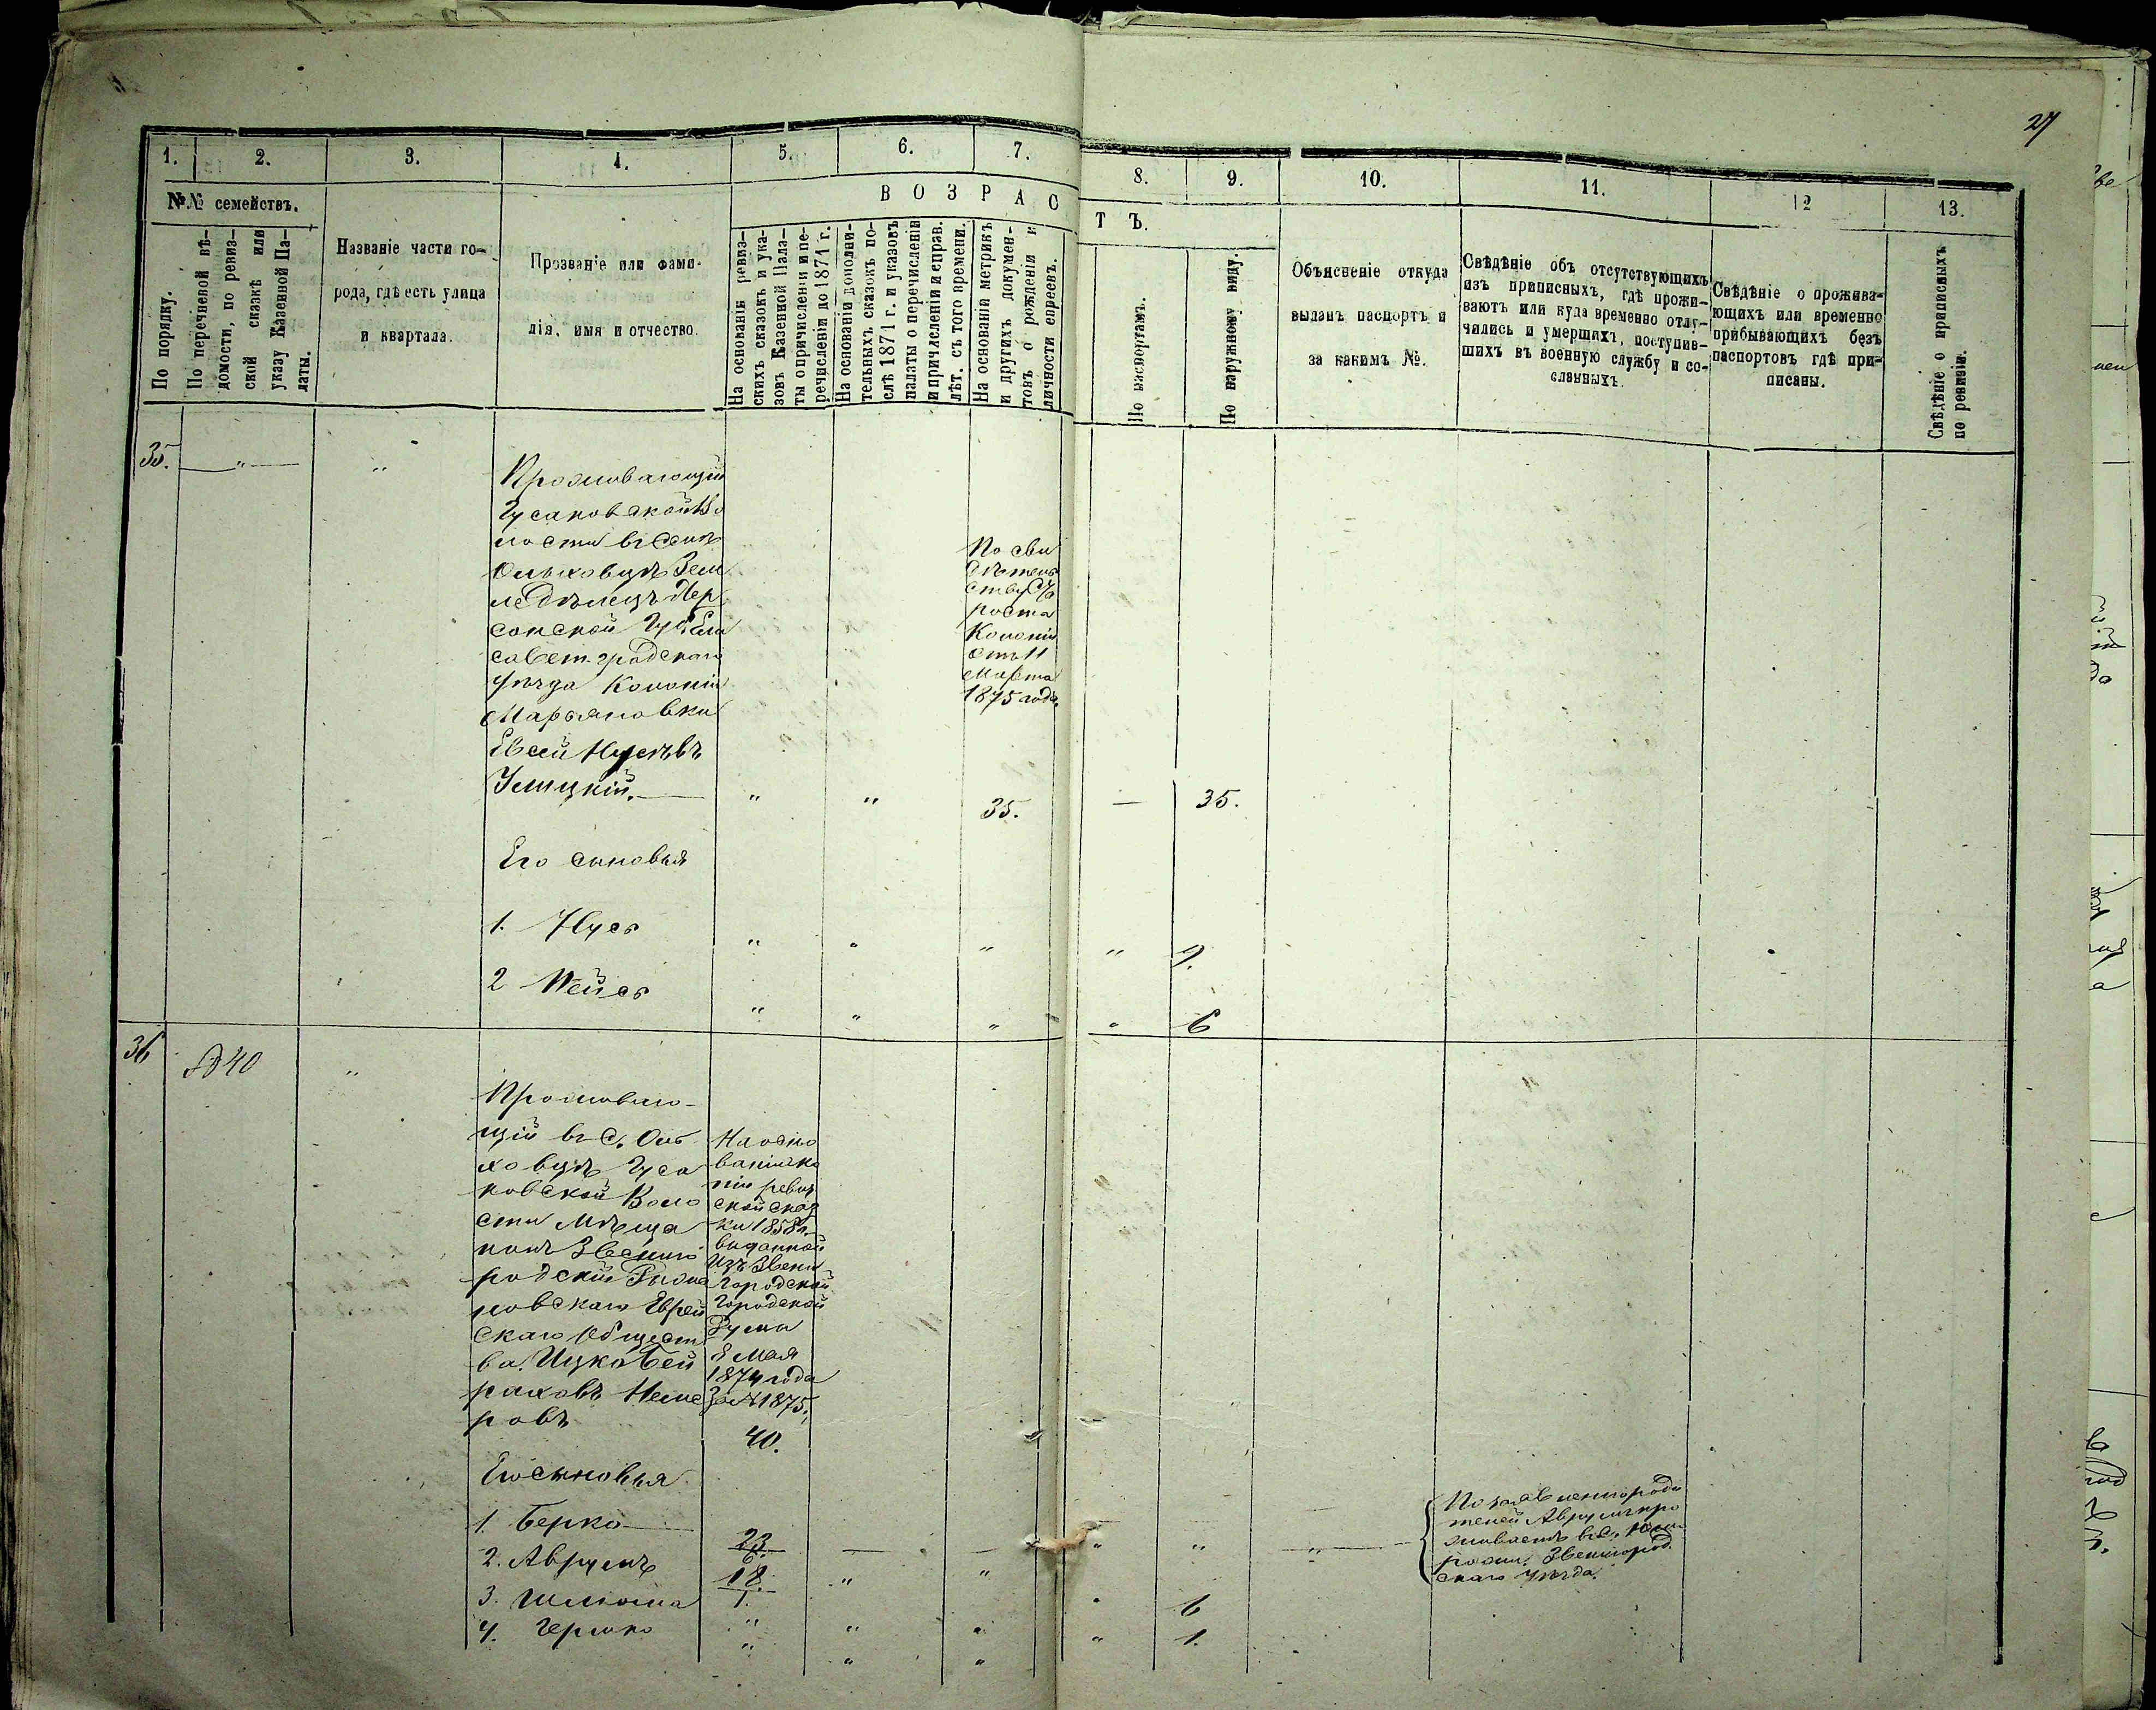 27
1. 2. 3. 4. 5. 6. 7. 8. 9. 10. 11. 12 13.
№№ семействъ.
В О З Р А С Т Ъ.
По порядку.
По перечневой вѣ-
домости, по ревиз-
ской сказкѣ или
указу Казенной Па-
латы.
Названіе части го-
рода, гдѣ есть улица
и квартала.
Прозваніе или фами-
лія, имя и отчество.
На основаніи ревиз-
скихъ сказокъ и ука-
зовъ Казенной Пала-
ты о причисленіи и пе-
речисленіи до 1871 г.
На основаніи дополни-
тельныхъ сказокъ по-
слѣ 1871 г. и указовъ
палаты о перечисленіи
и причисленіи и справ.
лѣт. съ того времени.
На основаніи метрикъ
и другихъ докумен-
товъ о рожденіи и
личности евреевъ.
По паспортамъ.
По наружному виду.
Объясненіе откуда
выданъ паспортъ и
за какимъ №.
Свѣдѣніе объ отсутствующихъ
изъ приписныхъ, гдѣ прожи-
ваютъ или куда временно отлу-
чились и умершихъ, поступив-
шихъ въ военную службу и со-
сланныхъ.
Свѣдѣніе о прожива-
ющихъ или временно
прибывающихъ безъ
паспортовъ гдѣ при-
писаны.
Свѣдѣніе о приписныхъ
по ревизіи.
35. — " — "
Проживающій
Гусаковской Во
лости въ Селѣ
Ольховцѣ Зем
ледѣлецъ Хер
сонской Губ. Ели
саветградскаго
уѣзда Колоніи
Марьяновки
Евсей Нусевъ
Улицкій. — " " 35. — 35.
По сви
дѣтель
ству
роста
Колоніи
отъ 11
Марта
1875 года
Его сыновья
1. Нусь " " " " 9.
2 Лейсь " " " " 6
36 40 "
Проживаю-
щій въ С. Оль
ховцѣ Гуса
ковской Воло
сти Мѣща
нинъ Звениго
родскій
новскаго Еврей
скаго Общест
ва Ицко Бей
раховъ Неме
ровъ
На осно
ваніи ко
піи ревиз
ской сказ
ки 1858 г.
выданной
изъ Звени
городской
Городской
Думы
8 Мая
1874 года
За № 1875.
40.
Его сыновья
1. Берко — 23/6. — — " " — " —
2. Аврумъ 18/1. " "
3. Шліома " " " " 6
4. Гершко " " " " 1.
По заявленію роди
телей Аврумъ про
живаетъ въ С.
Звенигород
скаго уѣзда.